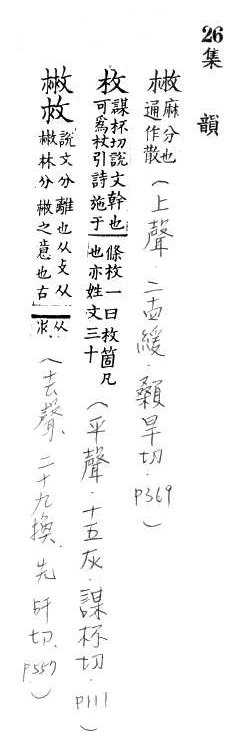 26集韻
㪔麻分也
通作散（上聲．二十四緩．顙旱切．P369）
枚謀杯切說文榦也
可為杖引詩施于
條枚一曰枚箇凡
也亦姓文三十（平聲．十五灰．謀杯切．P111）
㪔說文分離也从攴从
林分㪔之意也古
从（去聲、二十九換、先旰切．P557）